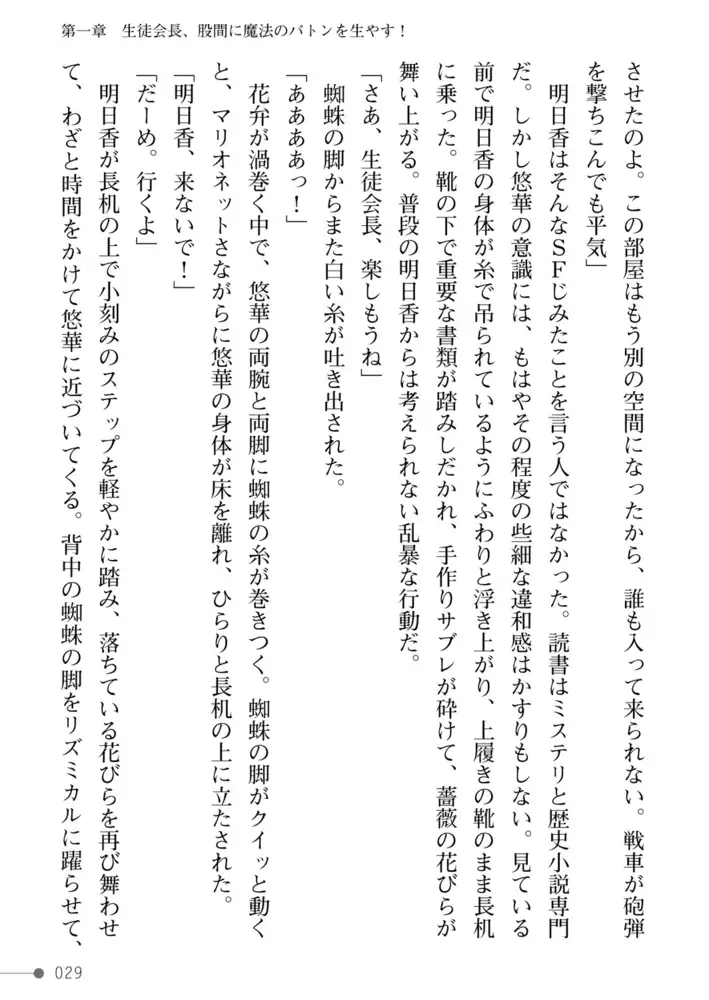 第一章　生徒会長、股間に魔法のバトンを生やす！
させたのよ。この部屋はもう別の空間になったから、誰も入って来られない。戦車が砲弾
を撃ちこんでも平気」
　明日香はそんなＳＦじみたことを言う人ではなかった。読書はミステリと歴史小説専門
だ。しかし悠華の意識には、もはやその程度の些細な違和感はかすりもしない。見ている
前で明日香の身体が糸で吊られているようにふわりと浮き上がり、上履きの靴のまま長机
に乗った。靴の下で重要な書類が踏みしだかれ、手作りサブレが砕けて、薔薇の花びらが
舞い上がる。普段の明日香からは考えられない乱暴な行動だ。
「さあ、生徒会長、楽しもうね」
　蜘蛛の脚からまた白い糸が吐き出された。
「ああああっ！」
　花弁が渦巻く中で、悠華の両腕と両脚に蜘蛛の糸が巻きつく。蜘蛛の脚がクイッと動く
と、マリオネットさながらに悠華の身体が床を離れ、ひらりと長机の上に立たされた。
「明日香、来ないで！」
「だーめ。行くよ」
　明日香が長机の上で小刻みのステップを軽やかに踏み、落ちている花びらを再び舞わせ
て、わざと時間をかけて悠華に近づいてくる。背中の蜘蛛の脚をリズミカルに躍らせて、
029